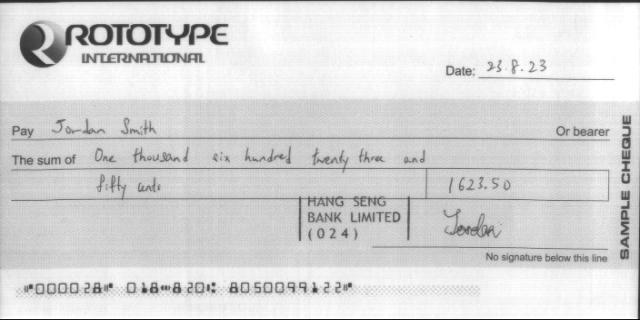 ROTOTYPE
INTERNATIONAL
Date: 23.8.23
Pay Jordan Smith Or bearer
The sum of One thousand six hundred twenty three and
fifty cents 1623.50
HANG SENG
BANK LIMITED
(024)
Jordan
No signature below this line
SAMPLE CHEQUE
⑈000028⑈ 018⑉820⑆ 805009922⑈